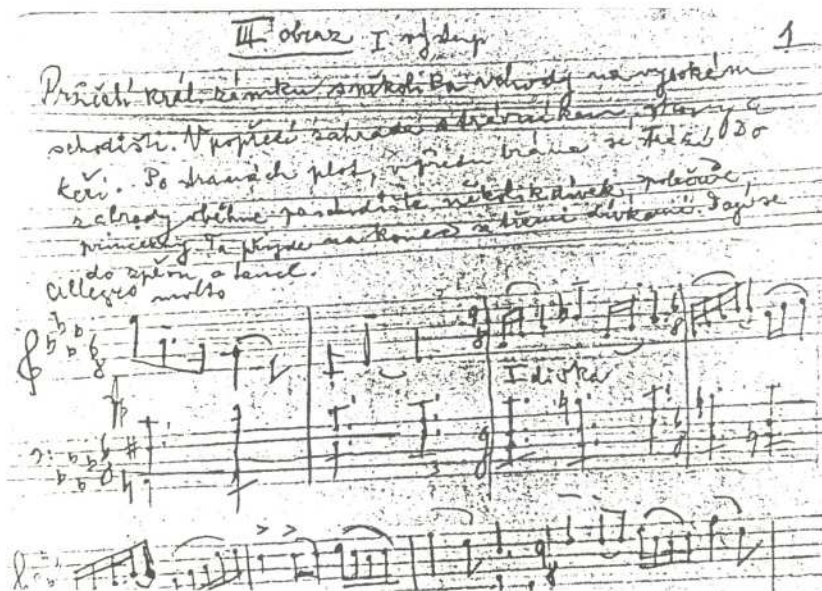 III obraz I výstup 1
Průčelí král. zámku s několika vchody na vysokém
schodišti. V popředí zahrada s trávníkem, stromy a
keři. Po stranách plot, vpředu brána se stráží. Do
zahrady oběhne po schodiště několik dívek
princezny. Ta přijde na konec se třemi dívkami. Dají se
do zpěvu a tance.
Allegro molto
I dívka